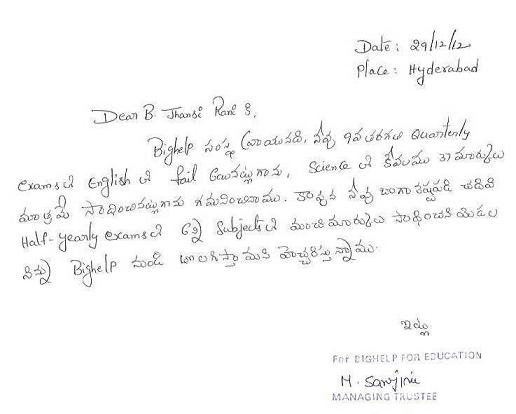 Date: 29/12/12
Place: Hyderabad
Dear B. Jhansi Rani B,
Bighelp సంస్థ వ్రాయునది, నీవు 9వ తరగతి Quarterly
exams లో English లో fail అయినట్లుగాను, Science లో కేవలము 37 మార్కులు
మాత్రమే సాధించినట్లుగాను గమనించినాము. కావున నీవు బాగా కష్టపడి చదివి
Half-yearly exams లో అన్ని Subjects లో మంచి మార్కులు సాధించని యెడల
నిన్ను Bighelp నుండి తొలగిస్తామని హెచ్చరిస్తున్నాము.
ఇట్లు
For BIGHELP FOR EDUCATION
M. Sarojini
MANAGING TRUSTEE